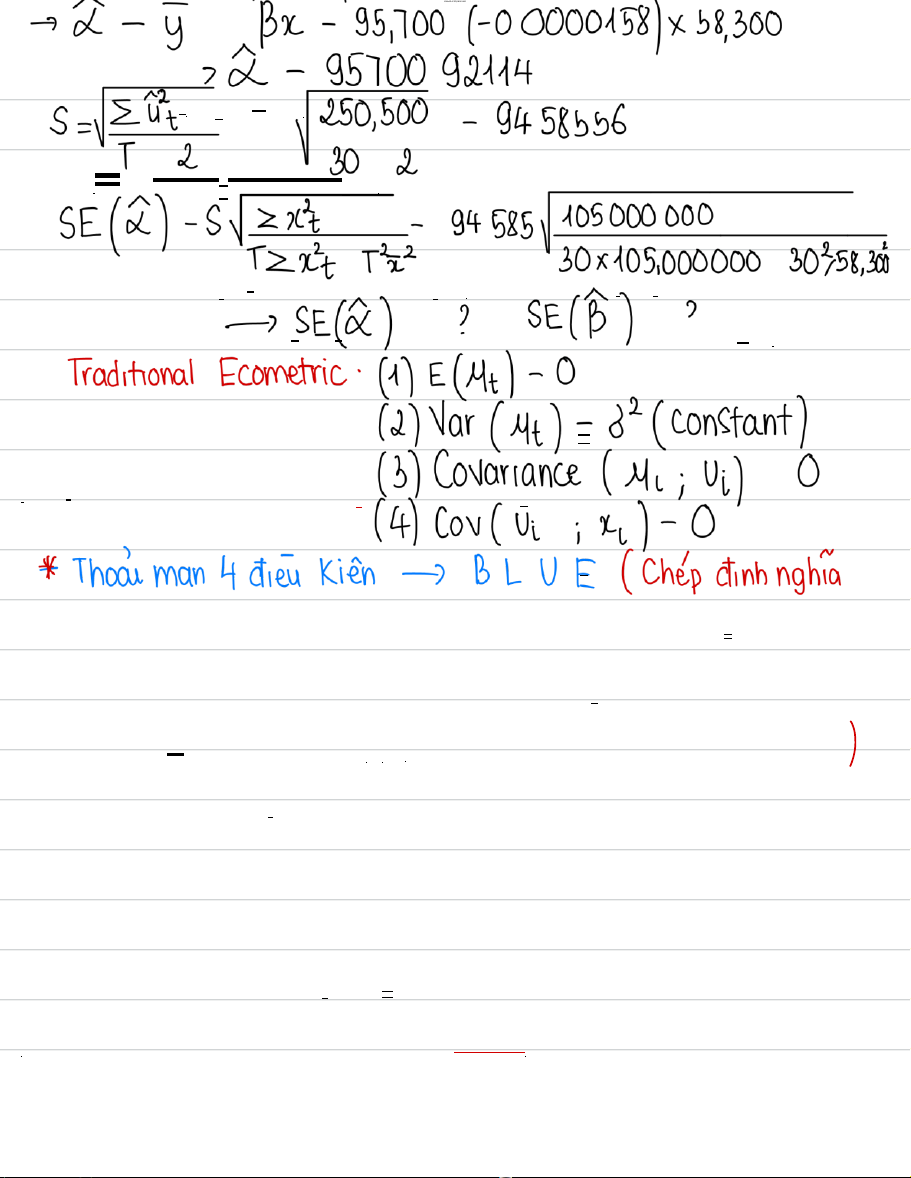 → α̂ - y̅ βx - 95,700 (-0 0000158) × 58,300
→ α̂ - 95700 92114
S = √(Σû²t / T 2) - √(250,500 / 30 2) - 94 58556
SE(α̂) - S√(Σx²t / TΣx²t T²x̄²) - 94 585√(105 000 000 / 30×105,000000 30²×58,300²)
→ SE(α̂) ? SE(β̂) ?
Traditional Ecometric. (1) E(μt) - 0
(2) Var(μt) = δ² (constant)
(3) Covariance (μi ; Ui) 0
(4) Cov(Ui ; xi) - 0
* Thoải man 4 điêu Kiên → B L U E (Chép đinh nghĩa
)